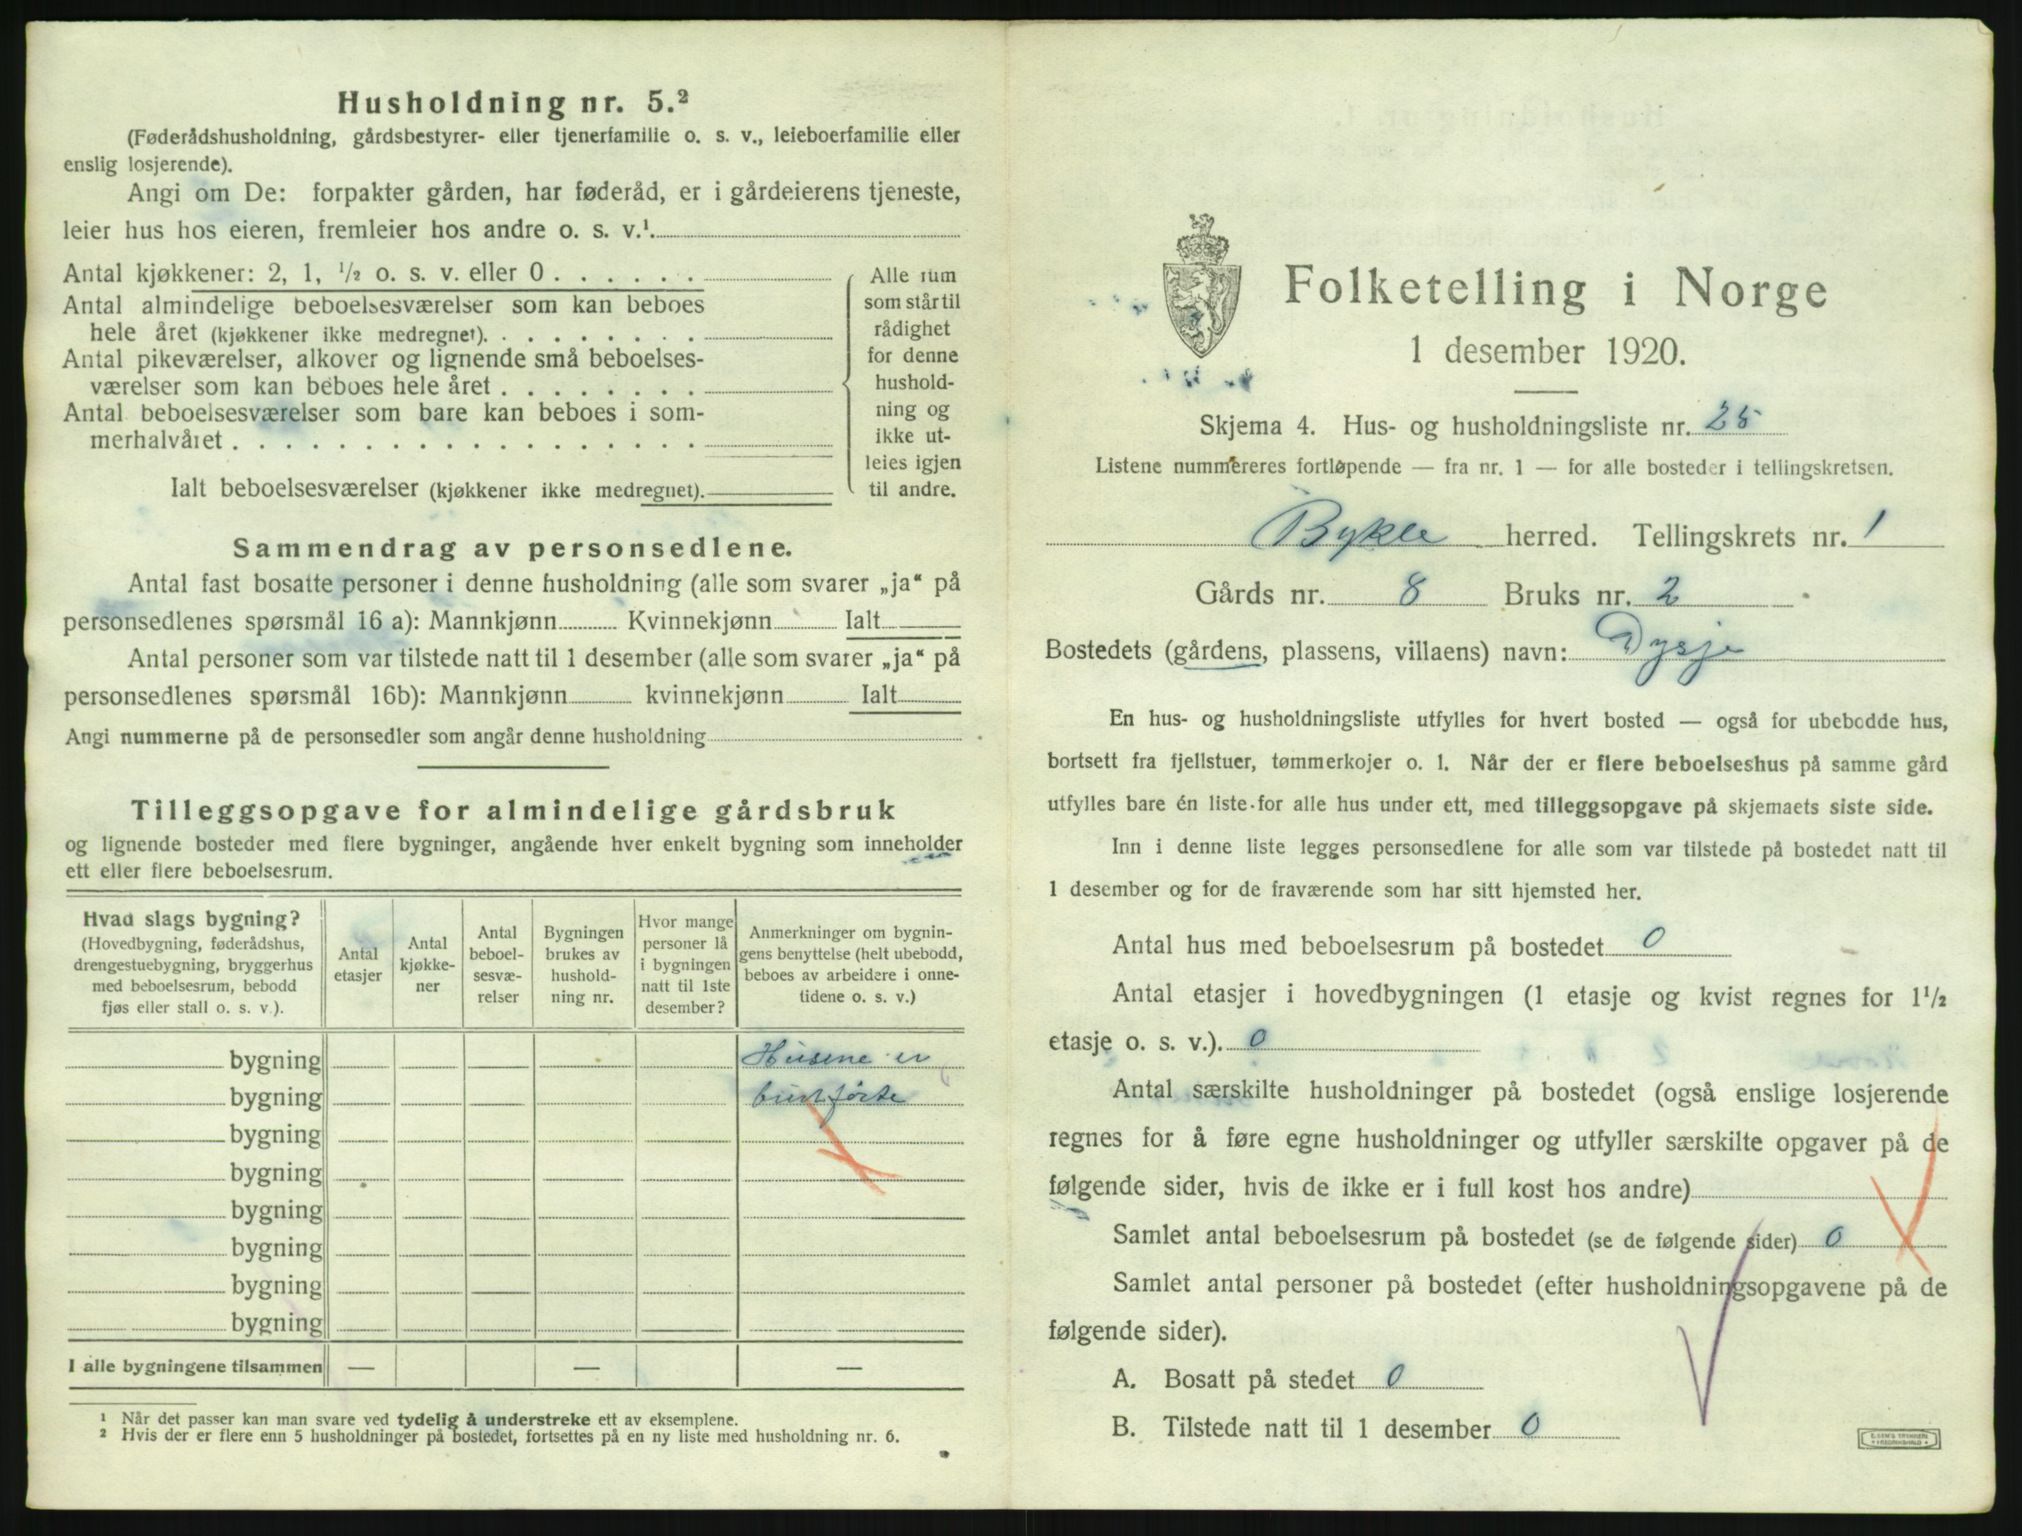 Husholdning nr. 5.²
(Føderådshusholdning, gårdsbestyrer- eller tjenerfamilie o. s. v., leieboerfamilie eller
enslig losjerende).
Angi om De: forpakter gården, har føderåd, er i gårdeierens tjeneste,
leier hus hos eieren, fremleier hos andre o. s. v.¹
Antal kjøkkener: 2, 1, ½ o. s. v. eller 0 . . . . . .
Antal almindelige beboelsesværelser som kan beboes
hele året (kjøkkener ikke medregnet). . . . . . . . .
Antal pikeværelser, alkover og lignende små beboelses-
værelser som kan beboes hele året . . . . . . . .
Antal beboelsesværelser som bare kan beboes i som-
merhalvåret . . . . . . . . . . . . . . . . . .
Ialt beboelsesværelser (kjøkkener ikke medregnet).
Alle rum
som står til
rådighet
for denne
hushold-
ning og
ikke ut-
leies igjen
til andre.
Sammendrag av personsedlene.
Antal fast bosatte personer i denne husholdning (alle som svarer „ja“ på
personsedlenes spørsmål 16 a): Mannkjønn Kvinnekjønn Ialt
Antal personer som var tilstede natt til 1 desember (alle som svarer „ja“ på
personsedlenes spørsmål 16b): Mannkjønn kvinnekjønn Ialt
Angi nummerne på de personsedler som angår denne husholdning
Tilleggsopgave for almindelige gårdsbruk
og lignende bosteder med flere bygninger, angående hver enkelt bygning som inneholder
ett eller flere beboelsesrum.
Hvad slags bygning?
(Hovedbygning, føderådshus,
drengestuebygning, bryggerhus
med beboelsesrum, bebodd
fjøs eller stall o. s. v.).
Antal
etasjer
Antal
kjøkke-
ner
Antal
beboel-
sesvæ-
relser
Bygningen
brukes av
hushold-
ning nr.
Hvor mange
personer lå
i bygningen
natt til 1ste
desember?
Anmerkninger om bygnin-
gens benyttelse (helt ubebodd,
beboes av arbeidere i onne-
tidene o. s. v.)
bygning Husene er
bygning bortførte
bygning
bygning
bygning
bygning
bygning
bygning
I alle bygningene tilsammen — — —
¹ Når det passer kan man svare ved tydelig å understreke ett av eksemplene.
² Hvis der er flere enn 5 husholdninger på bostedet, fortsettes på en ny liste med husholdning nr. 6.
Folketelling i Norge
1 desember 1920.
Skjema 4. Hus- og husholdningsliste nr. 25
Listene nummereres fortløpende — fra nr. 1 — for alle bosteder i tellingskretsen.
Bykle herred. Tellingskrets nr. 1
Gårds nr. 8 Bruks nr. 2
Bostedets (gårdens, plassens, villaens) navn: Dysje
En hus- og husholdningsliste utfylles for hvert bosted — også for ubebodde hus,
bortsett fra fjellstuer, tømmerkojer o. l. Når der er flere beboelseshus på samme gård
utfylles bare én liste for alle hus under ett, med tilleggsopgave på skjemaets siste side.
Inn i denne liste legges personsedlene for alle som var tilstede på bostedet natt til
1 desember og for de fraværende som har sitt hjemsted her.
Antal hus med beboelsesrum på bostedet 0
Antal etasjer i hovedbygningen (1 etasje og kvist regnes for 1½
etasje o. s. v.). 0
Antal særskilte husholdninger på bostedet (også enslige losjerende
regnes for å føre egne husholdninger og utfyller særskilte opgaver på de
følgende sider, hvis de ikke er i full kost hos andre)
Samlet antal beboelsesrum på bostedet (se de følgende sider) 0
Samlet antal personer på bostedet (efter husholdningsopgavene på de
følgende sider).
A. Bosatt på stedet 0
B. Tilstede natt til 1 desember 0